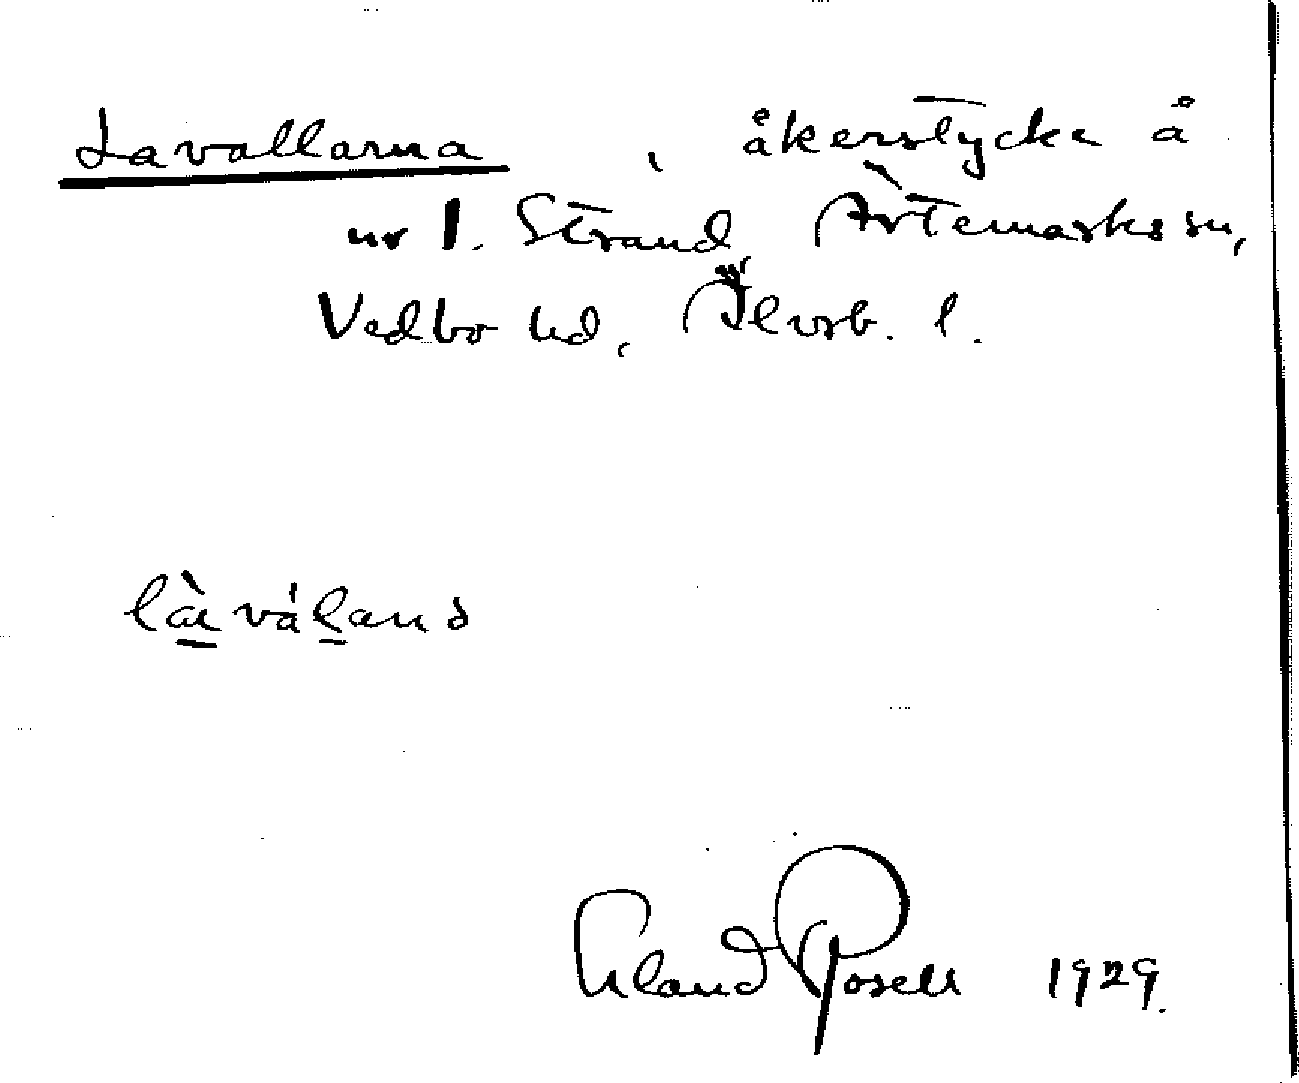 Lavallarna, åkerstycke å
nr 1. Strand, Ärtemarks sn,
Vedbo hd, Älvsb. l.
là̱váḻans
Erland Rosell 1929.